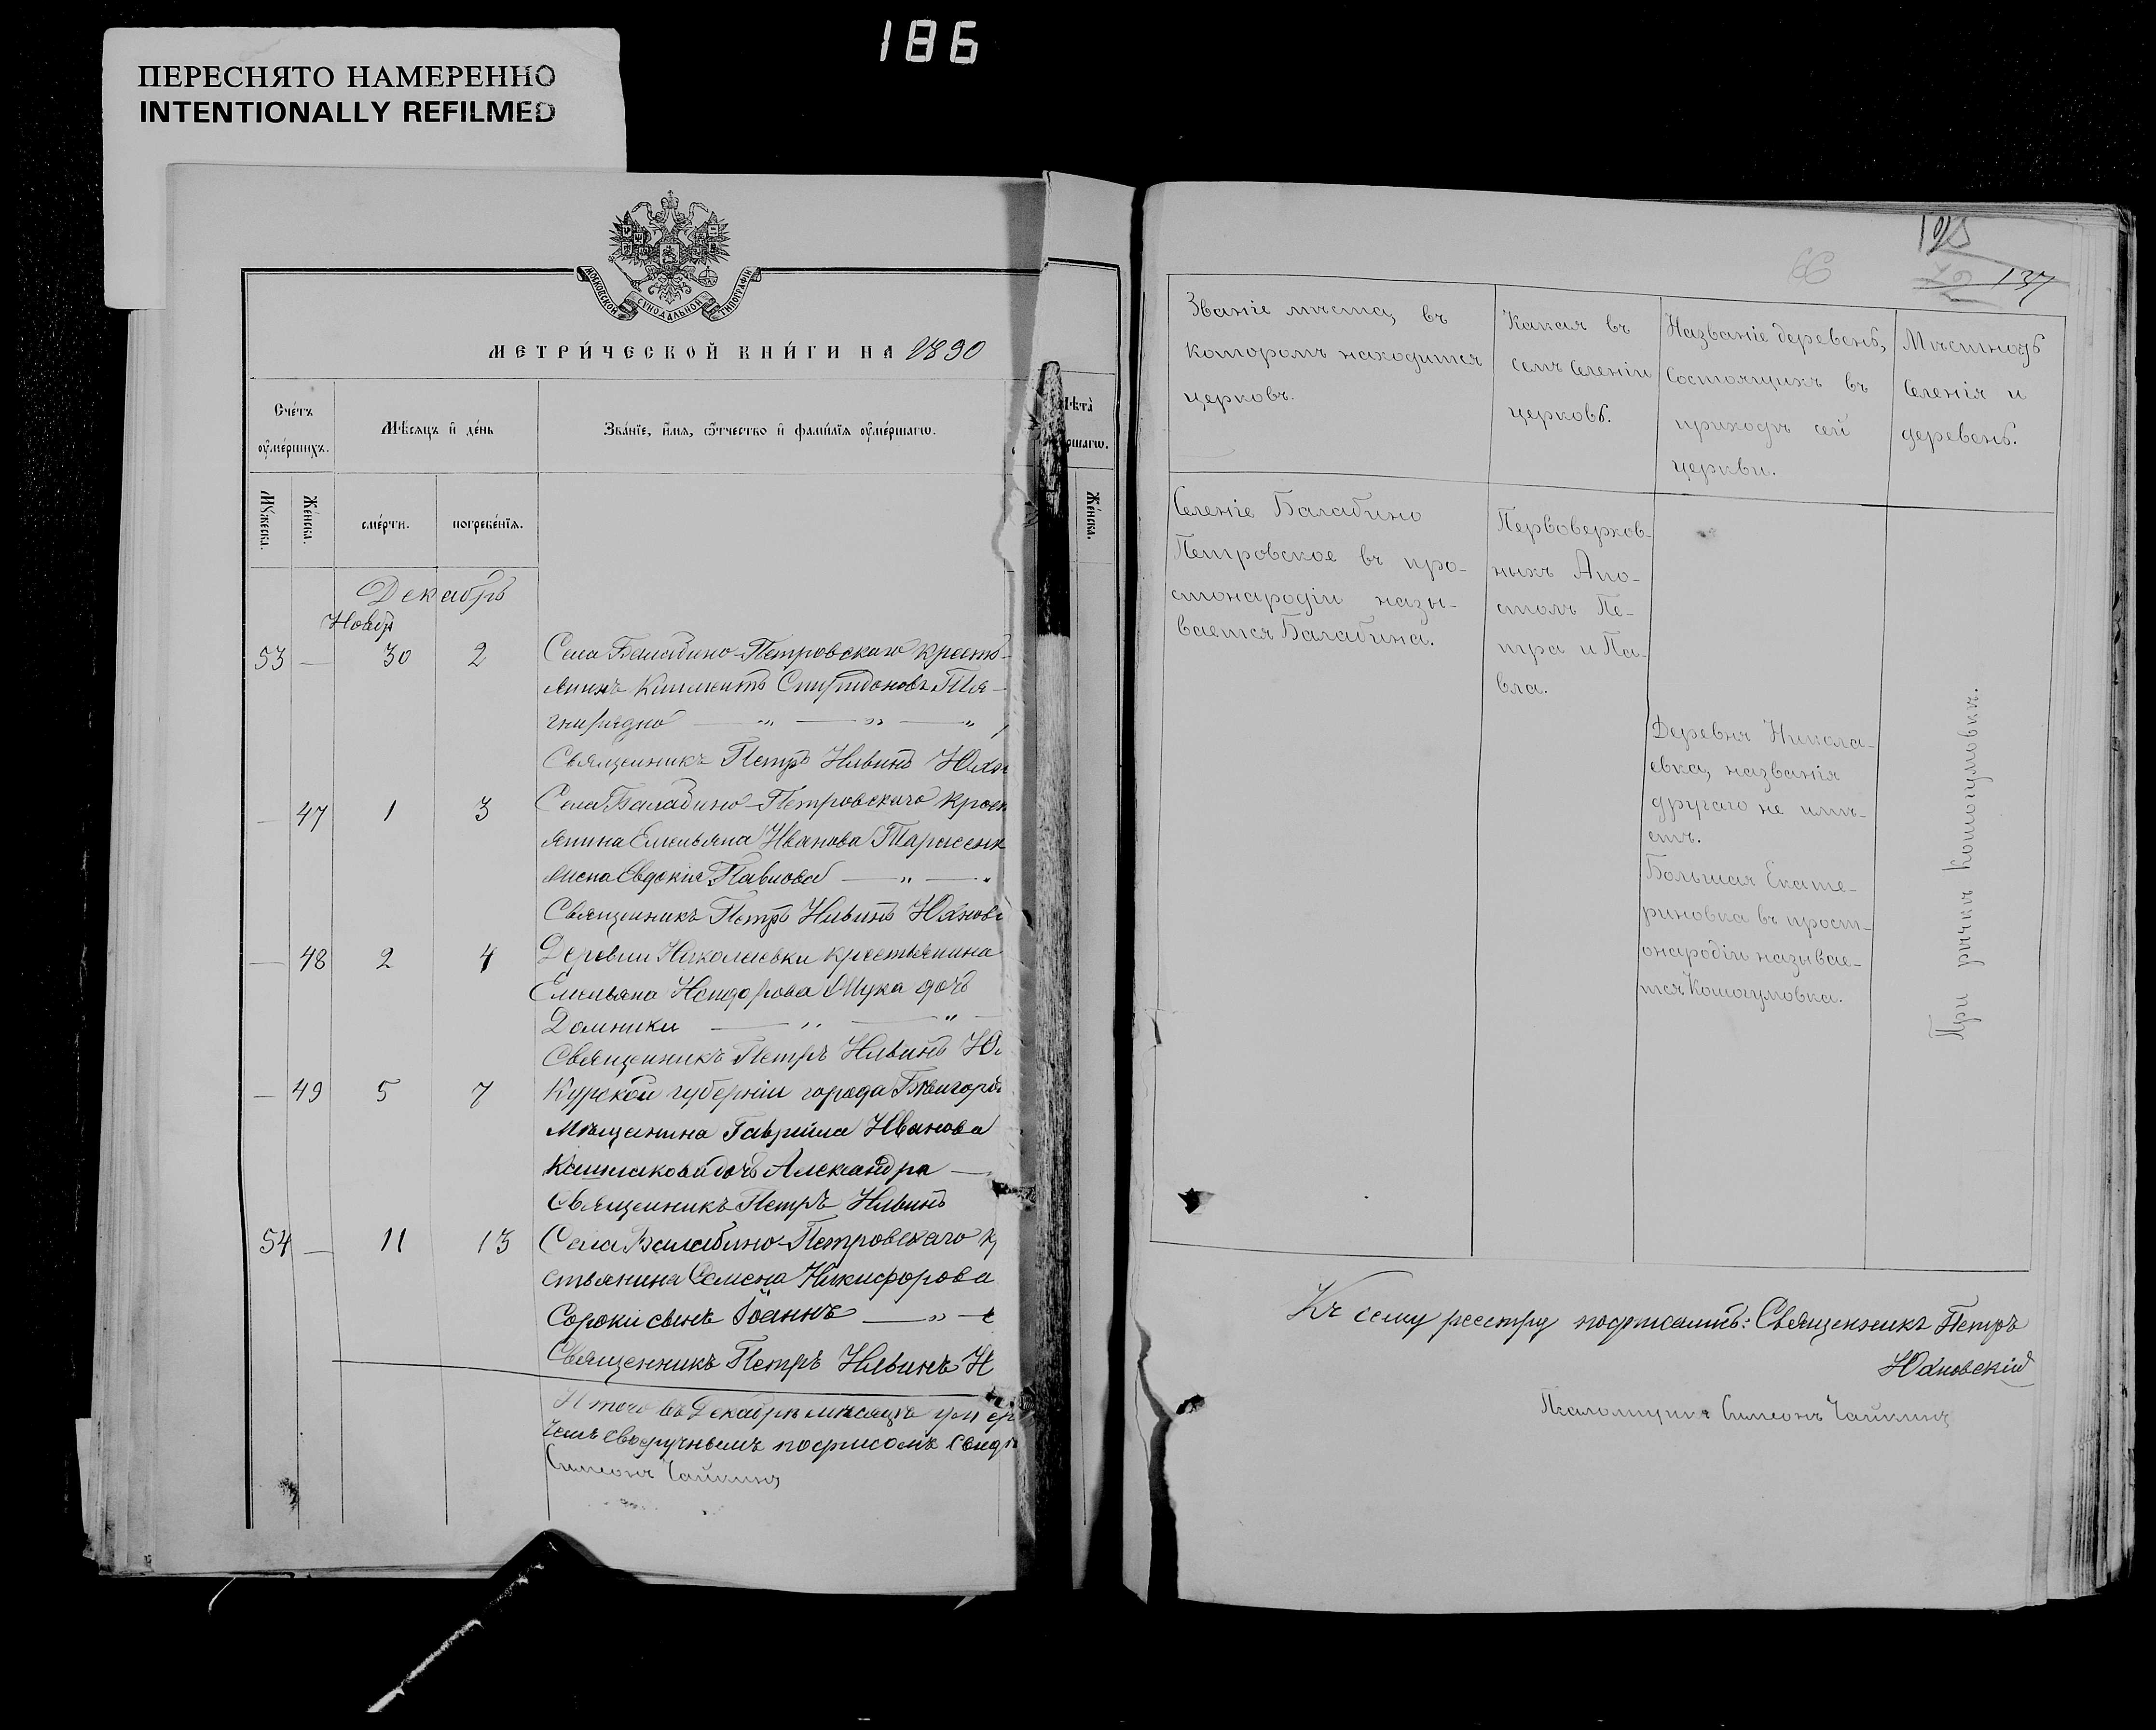 186
ПЕРЕСНЯТО НАМЕРЕННО
INTENTIONALLY REFILMED
МОСКОВСКОЙ СѴНОДАЛЬНОЙ ТИПОГРАФІИ
МЕТРИ́ЧЕСКОЙ КНИ́ГИ НА 1890
Сче́тъ оу҆ме́ршихъ.
Мѣ́сѧцъ и҆ де́нь
Зва́нїе, и҆́мѧ, ѻ҆́тчество и҆ фами́лїѧ оу҆ме́ршагѡ.
Мꙋ́жеска.
Же́нска.
сме́рти.
погребе́нїѧ.
Же́нска.
Декабрь
Нояб
53 — 30 2 Села Балабино-Петровскаго кресть-
янинъ Климентъ Спиридоновъ Тя-
гнирядно — „ — „ — „
Священникъ Петръ Ильинъ Юхн
— 47 1 3 Села Балабино-Петровскаго крест
янина Емельяна Иванова Тарасенк
жена Евдокія Павлова — „ — „
Священникъ Петръ Ильинъ Юхнов
— 48 2 4 Деревни Николаевки крестьянина
Емельяна Исидорова Щука дочь
Домники — „ — „ —
Священникъ Петръ Ильинъ Ю
— 49 5 7 Курской губерніи города
Мѣщанина Гавріила Иванова
дочь Александра —
Священникъ Петръ Ильинъ
54 — 11 13 Села Балабино-Петровскаго к
стьянина Семена Никифорова
Сороки сынъ Іоаннъ — „ —
Священникъ Петръ Ильинъ
Итого въ Декабрѣ мѣсяцѣ умер
чемъ своеручнымъ подписомъ свид
Симеонъ Чайкинъ
195
66
137
Званіе мѣста, въ
которомъ находится
церковь.
Какая въ
семъ селеніи
церковь.
Названіе деревень,
состоящихъ въ
приходѣ сей
церкви.
Мѣстность
селенія и
деревень.
Селеніе Балабино
Петровское въ про-
стонародіи назы-
вается Балабина.
Первоверхов-
ныхъ Апо-
столъ Пе-
тра и Па-
вла.
Деревня Никола-
евка, названія
другаго не имѣ-
етъ.
Большая Екате-
риновка въ прост-
онародіи называе-
тся Кошогумовка.
При рѣчкѣ Кошогумовкѣ.
Къ сему реестру подписались: Священникъ Петръ
Юхновскій
Псаломщикъ Симеонъ Чайкинъ